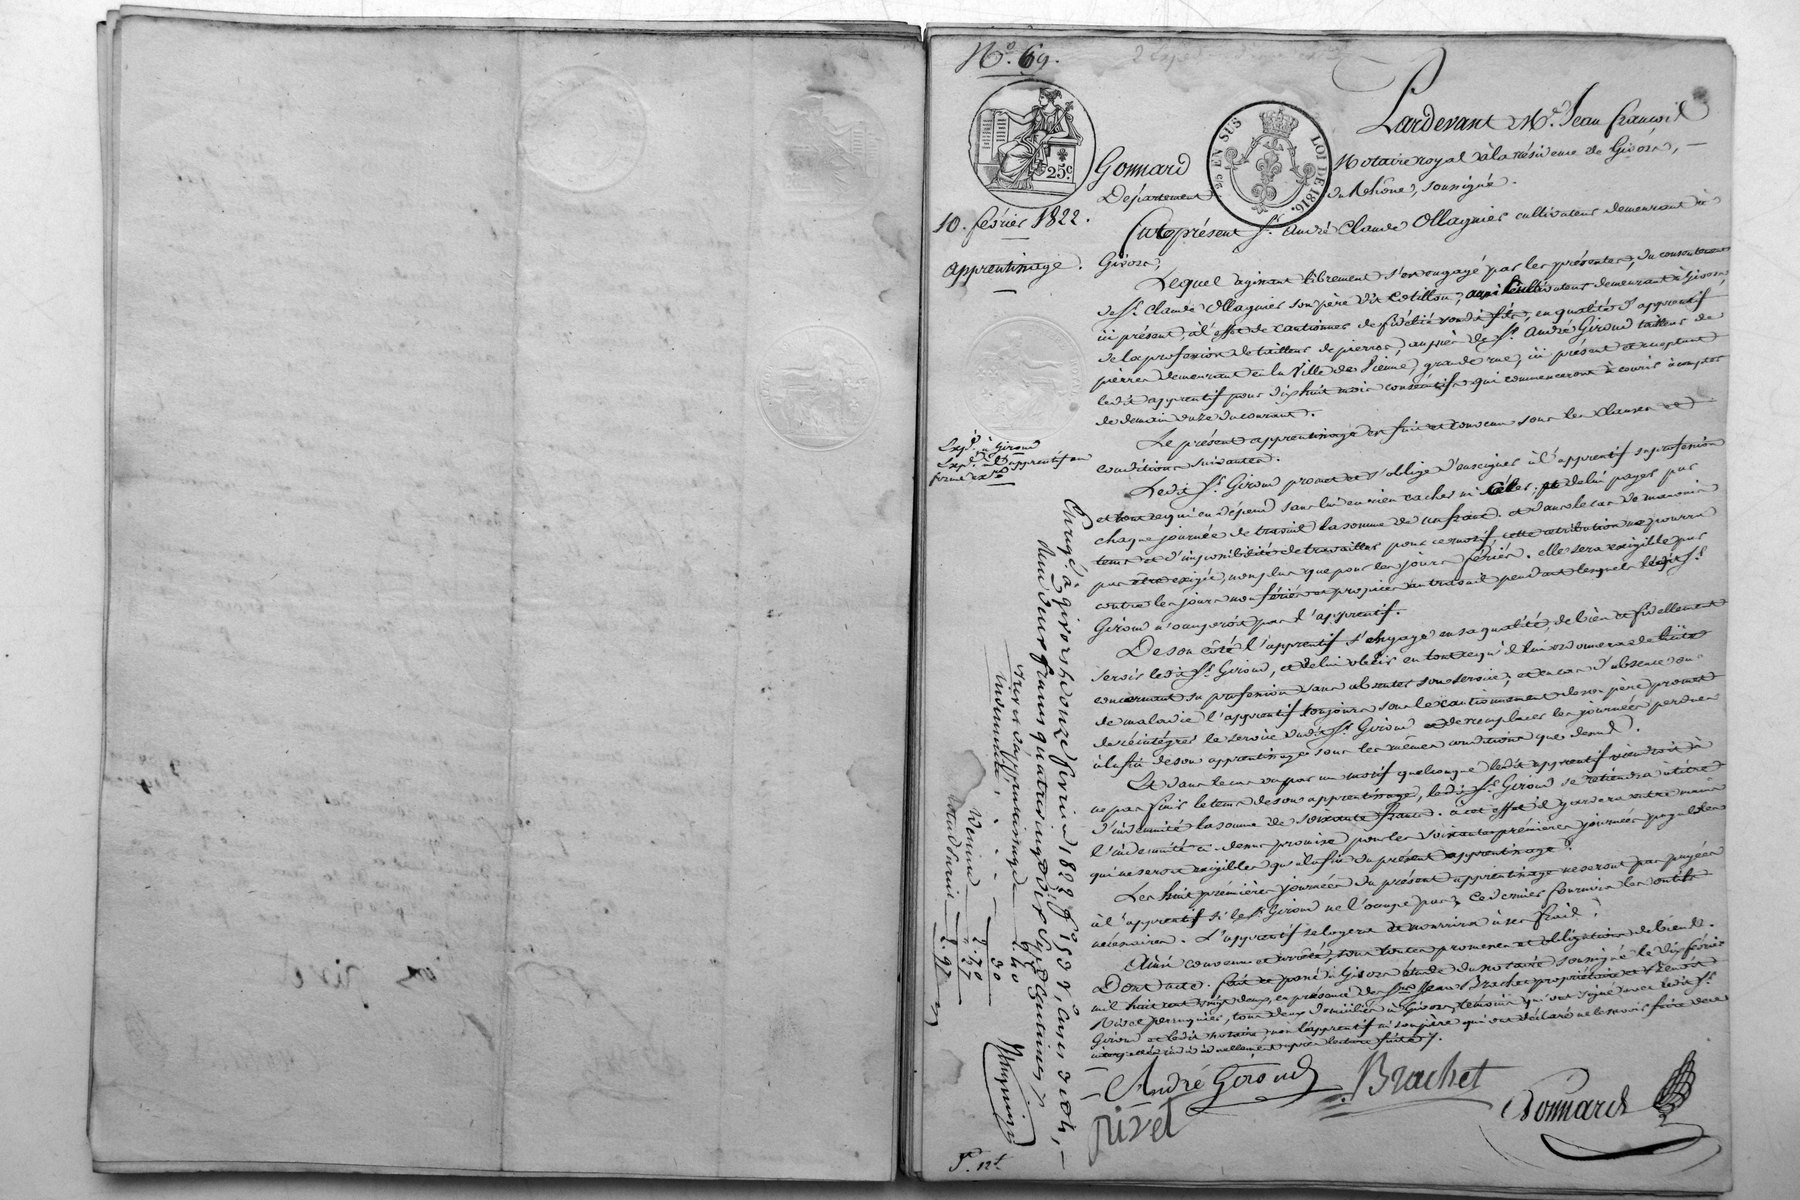 N.o 69.
25c
EN SUS
LOI DE 1816.
Pardevant Me. Jean françois
Gonnard Notaire royal à la résidence de Givors,
Département du Rhône, soussigné.
10. février 1822.
fut présent Sr. André Claude Ollagnier cultivateur demeurant à
apprentissage.
Givors,
Lequel agissant librement s'est engagé par les présentes, du consentement
de Sr. Claude Ollagnier son père dit Cotillon, aussi Cultivateur demeurant à Givors
ici présent, à l'effet de cautionner de fidélité sondit fils, en qualité d'apprentif
de la profession de tailleur de pierres, auprès de Sr. André Giroud tailleur de
pierres demeurant en la Ville de Vienne, grande rue, ici présent et acceptant
ledit apprentif pour dixhuit mois consécutifs qui commenceront à courir à compter
de demain onze du courant.
Le présent apprentissage est fait et convenu sous les clauses et
conditions suivantes.
Exp.on à Giroud
Exp.on à l'apprentif en
forme ex.re
Ledit Sr. Giroud promet et s'oblige d'enseigner à l'apprentif sa profession
et tout ce qui en dépend sans lui en rien cacher ni céler, et de lui payer par
chaque journée de travail la somme de un franc. et dans le cas de mauvais
tems et d'impossibilité de travailler pour ce motif, cette rétribution ne pourra
pas être exigée, non plus que pour les jours fériés. elle sera exigible par
contre les jours non fériés et propices au travail pendant lesquels ledit Sr.
Giroud n'occuperoit pas l'apprentif.
De son côté l'apprentif s'engage en sa qualité, de bien et fidellement
servir ledit Sr. Giroud, et de lui obéir en tout ce qu'il lui ordonnera de licite
concernant sa profession sans absenter son service, et en cas d'absence ou
de maladie l'apprentif toujours sous le cautionnement de son père promet
de réintégrer le service dudit Sr. Giroud et de remplacer les journées perdues
à la fin de son apprentissage sous les mêmes conditions que dessus.
Et dans le cas où par un motif quelconque ledit apprentif viendroit à
ne pas finir le tems de son apprentissage, ledit Sr. Giroud se retiendra à titre
d'indemnité la somme de soixante francs. à cet effet il gardera entre mains
l'indemnité ci-dessus promise pour les soixante premières journées payables
qui ne sera exigible qu'à la fin du présent apprentissage.
Les huit premières journées du présent apprentissage ne seront pas payées
à l'apprentif si le Sr. Giroud ne l'occupe pas, ce dernier fournira les outils
nécessaires. L'apprentif se logera et nourrira à ses frais.
Ainsi convenu et arrêté, sous toutes promesses et obligations de bien &.
Dont acte. fait et passé à Givors étude du notaire soussigné le dix février
mil huit cent vingt deux, en présence de Srs. Jean Brachet propriétaire et Benoit
Rivet perruquier, tous deux domiciliés à Givors, témoins qui ont signé avec ledit Sr.
Giroud et ledit notaire, non l'apprentif ni son père qui ont déclaré ne le savoir faire de ce
interpellés individuellement après lecture faite.
André Giroud
Brachet
Rivet
Gonnard
Enregé. à givors le onze février 1822 fo. 153,
deux francs quatre vingt dix sept centimes
Prix d'apprentissage 2.40
indemnité 30
2.70
Décime 27
total 2.97